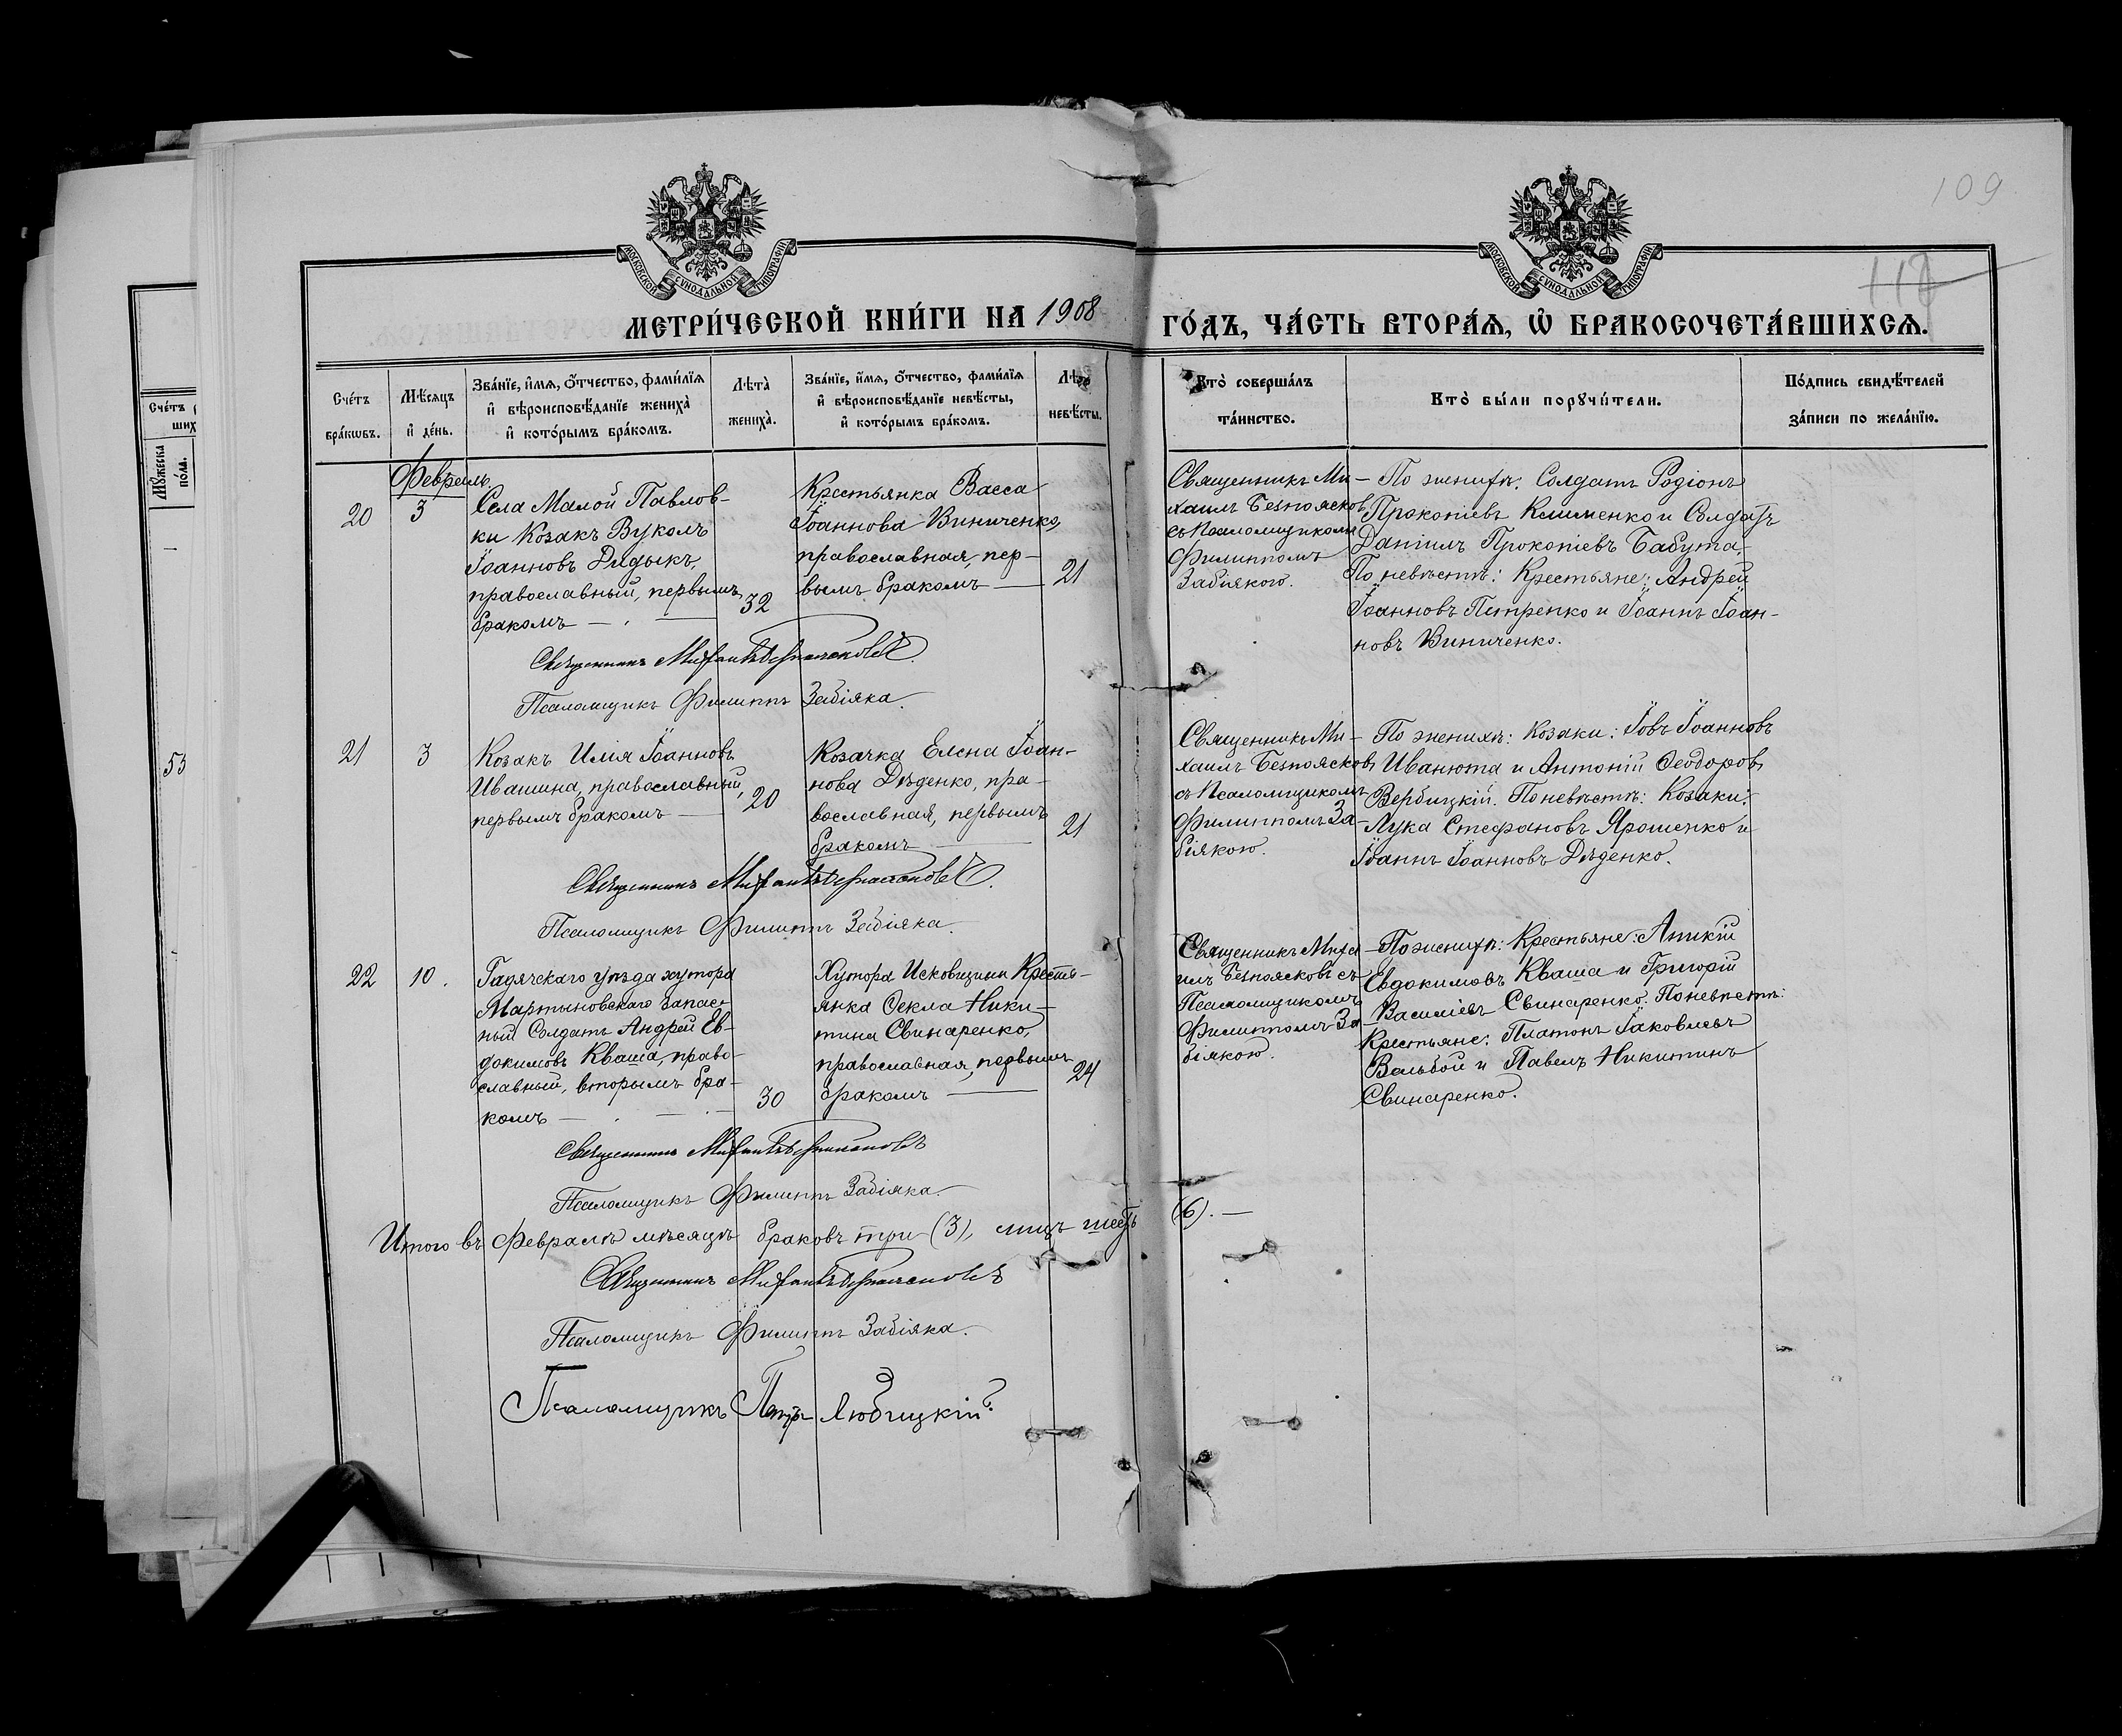 109
118
МОСКОВСКОЙ СѴНОДАЛЬНОЙ ТИПОГРАФІИ
МОСКОВСКОЙ СѴНОДАЛЬНОЙ ТИПОГРАФІИ
МЕТРИ́ЧЕСКОЙ КНИ́ГИ НА 1908 ГО́ДЪ, ЧА́СТЬ ВТОРА́Я, Ѡ҆ БРАКОСОЧЕТА́ВШИХСЯ.
Сче́тъ бра́кѡвъ.
Мѣ́сяцъ и҆ де́нь.
Зва́нїе, и҆́мя, ѻ҆́тчество, фами́лїя и҆ вѣроисповѣ́данїе жениха̀ и҆ кото́рымъ бра́комъ.
Лѣта̀ жениха̀.
Зва́нїе, и҆́мя, ѻ҆́тчество, фами́лїя и҆ вѣроисповѣ́данїе невѣ́сты, и҆ кото́рымъ бра́комъ.
Лѣта̀ невѣ́сты.
Кто̀ соверша́лъ та́инство.
Кто̀ бы́ли порꙋчи́тели.
По́дпись свидѣ́телей за́писи по жела́нїю.
Сче́тъ
ших
Мꙋ́жеска
по́ла.
53
Февраль
20
3
Села Малой Павлов-
ки Козакъ Вуколъ
Іоанновъ Дидыкъ,
православный, первымъ
бракомъ
32
Крестьянка Васса
Іоаннова Виниченко,
православная, пер-
вымъ бракомъ
21
Священникъ Ми-
хаилъ Безпоясковъ
съ Псаломщикомъ
Филиппомъ
Забіякою.
По жениху: Солдатъ Родіонъ
Прокопіевъ Клименко и Солдатъ
Даніилъ Прокопіевъ Бабута,
По невѣстѣ: Крестьяне: Андрей
Іоанновъ Петренко и Іоаннъ Іоан-
новъ Виниченко.
Священникъ Михаилъ Безпоясковъ.
Псаломщикъ Филиппъ Забіяка.
21
3
Козакъ Илія Іоанновъ
Ивашина, православный,
первымъ бракомъ
20
Козачка Елена Іоан-
нова Дѣденко, пра-
вославная, первымъ
бракомъ
21
Священникъ Ми-
хаилъ Безпоясковъ
съ Псаломщикомъ
Филиппомъ За-
біякою.
По женихѣ: Козаки: Іовъ Іоанновъ
Иванюта и Антоній Ѳеодоровъ
Вербицкій. По невѣстѣ: Козаки:
Лука Стефановъ Ярошенко и
Іоаннъ Іоанновъ Дѣденко.
Священникъ Михаилъ Безпоясковъ.
Псаломщикъ Филиппъ Забіяка.
22
10.
Гадячскаго уѣзда хутора
Мартыновскаго запас-
ный Солдатъ Андрей Ев-
докимовъ Кваша, право-
славный, вторымъ бра-
комъ
30
Хутора Исковщини Кресть-
янка Ѳекла Ники-
тина Свинаренко,
православная, первымъ
бракомъ
24
Священникъ Миха
илъ Безпоясковъ съ
Псаломщикомъ
Филиппомъ За-
біякою.
По женихѣ: Крестьяне: Аникій
Евдокимовъ Кваша и Григорій
Василіевъ Свинаренко. По невѣстѣ:
Крестьяне: Платонъ Іаковлевъ
Вольбой и Павелъ Никитинъ
Свинаренко.
Священникъ Михаилъ Безпоясковъ
Псаломщикъ Филиппъ Забіяка.
Итого въ Февралѣ мѣсяцѣ браковъ три (3), лицъ шесть (6).
Священникъ Михаилъ Безпоясковъ
Псаломщикъ Филиппъ Забіяка.
Псаломщикъ Петръ Любицкій